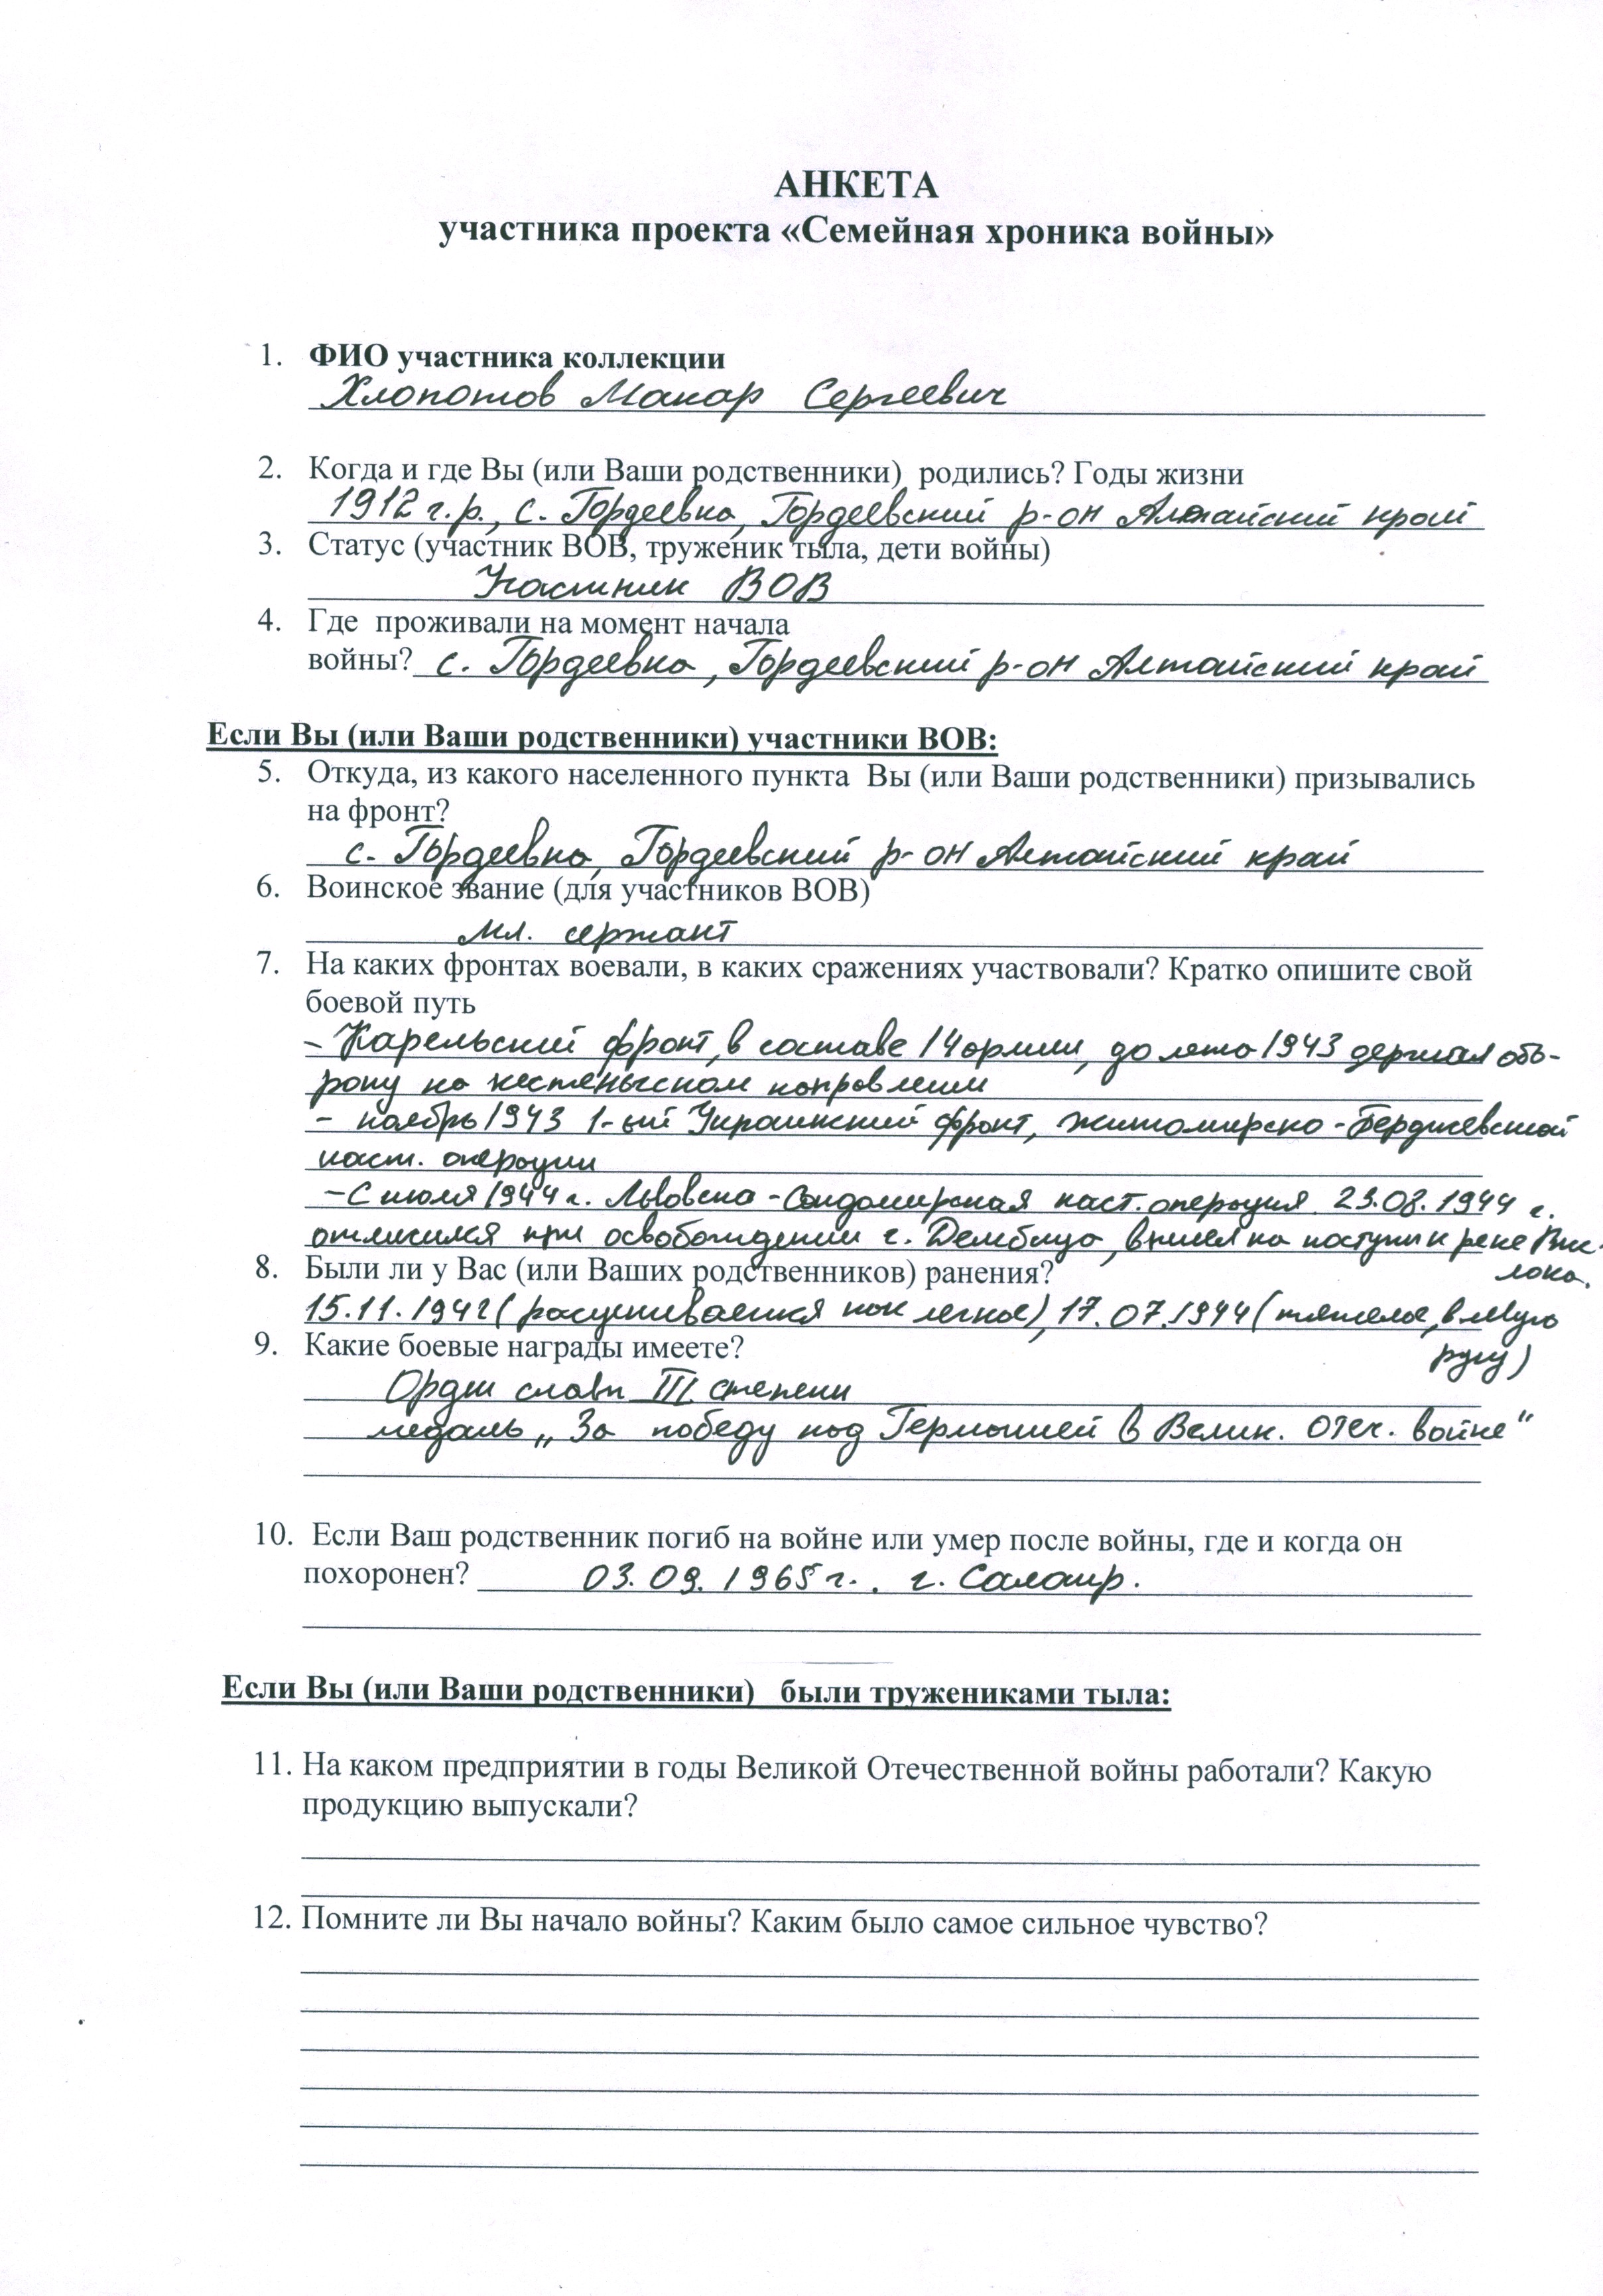 АНКЕТА
участника проекта «Семейная хроника войны»
1. ФИО участника коллекции
Хлопотов Макар Сергеевич
2. Когда и где Вы (или Ваши родственники) родились? Годы жизни
1912 г.р., с. Гордеевка, Гордеевский р-он Алтайский край
3. Статус (участник ВОВ, труженик тыла, дети войны)
Участник ВОВ
4. Где проживали на момент начала
войны? с. Гордеевка, Гордеевский р-он Алтайский край
Если Вы (или Ваши родственники) участники ВОВ:
5. Откуда, из какого населенного пункта Вы (или Ваши родственники) призывались
на фронт?
с. Гордеевка, Гордеевский р-он Алтайский край
6. Воинское звание (для участников ВОВ)
мл. сержант
7. На каких фронтах воевали, в каких сражениях участвовали? Кратко опишите свой
боевой путь
- Карельский фронт, в составе 14 армии, до лета 1943 держал обо-
рону на кестеньгском направлении
- ноябрь 1943 1-ый Украинский фронт, житомирско-Бердичевской
наст. операции
- С июля 1944 г. Львовско-Сандомирская наст. операция 23.08.1944 г.
отличился при освобождении г. Дембица, вышел на поступи к реке Вис-
лока.
8. Были ли у Вас (или Ваших родственников) ранения?
15.11.1942 (расценивается как легкое), 17.07.1944 (тяжелое, в левую
руку)
9. Какие боевые награды имеете?
Орден славы III степени
медаль „За победу над Германией в Велик. Отеч. войне"
10. Если Ваш родственник погиб на войне или умер после войны, где и когда он
похоронен? 03.09.1965 г., г. Салаир.
Если Вы (или Ваши родственники) были тружениками тыла:
11. На каком предприятии в годы Великой Отечественной войны работали? Какую
продукцию выпускали?
12. Помните ли Вы начало войны? Каким было самое сильное чувство?